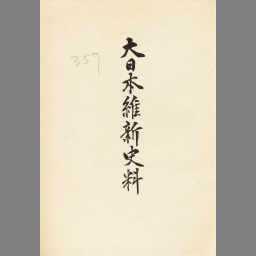 大日本維新史料
359